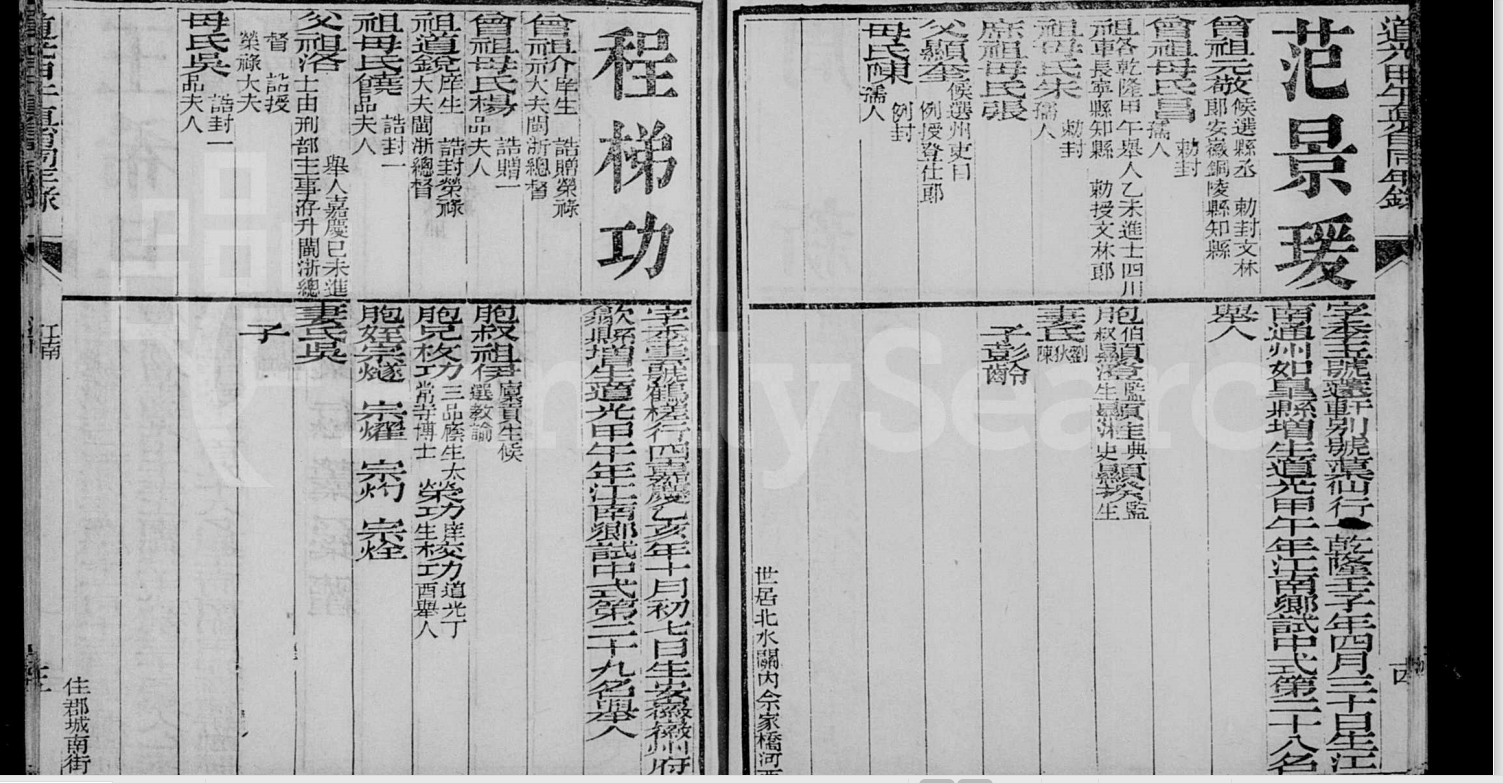 道光甲午直省同年錄
范景瑗
曾祖元敬候選縣丞 勅封文林郎安徽銅陵縣知縣
曾祖母氏昌 勅封孺人
祖各乾隆甲午舉人乙未進士四川車長寧縣知縣 勅授文林郎
祖母氏朱 勅封孺人
庶祖母氏張
父顯奎候選州吏目 例授登仕郎
母氏陳 例封孺人
行一乾隆壬子年四月三十日生江
南通州如皋縣增生道光甲午年江南鄉試中式第二十八名
舉人
妻氏劉狄陳
子彭齡
世居北水關內佘家橋河西
四
程梯功
曾祖价庠生 誥贈榮祿大夫閩浙總督
曾祖母氏楊 誥贈一品夫人
祖道銳庠生 誥封榮祿大夫閩浙總督
祖母氏饒 誥封一品夫人
父祖洛舉人嘉慶己未進士由刑部主事洊升閩浙總督 誥授榮祿大夫
母氏吳 誥封一品夫人
行四嘉慶乙亥年十月初七日生安徽徽州府
歙縣增生道光甲午年江南鄉試中式第二十九名舉人
胞叔祖伊廩貢生候選教諭
胞兄枚功三品廕生太常寺博士 榮功庠生 校功道光丁酉舉人
胞姪宗燧 宗燿 宗灼 宗烇
妻氏吳
子
住郡城南街
江南